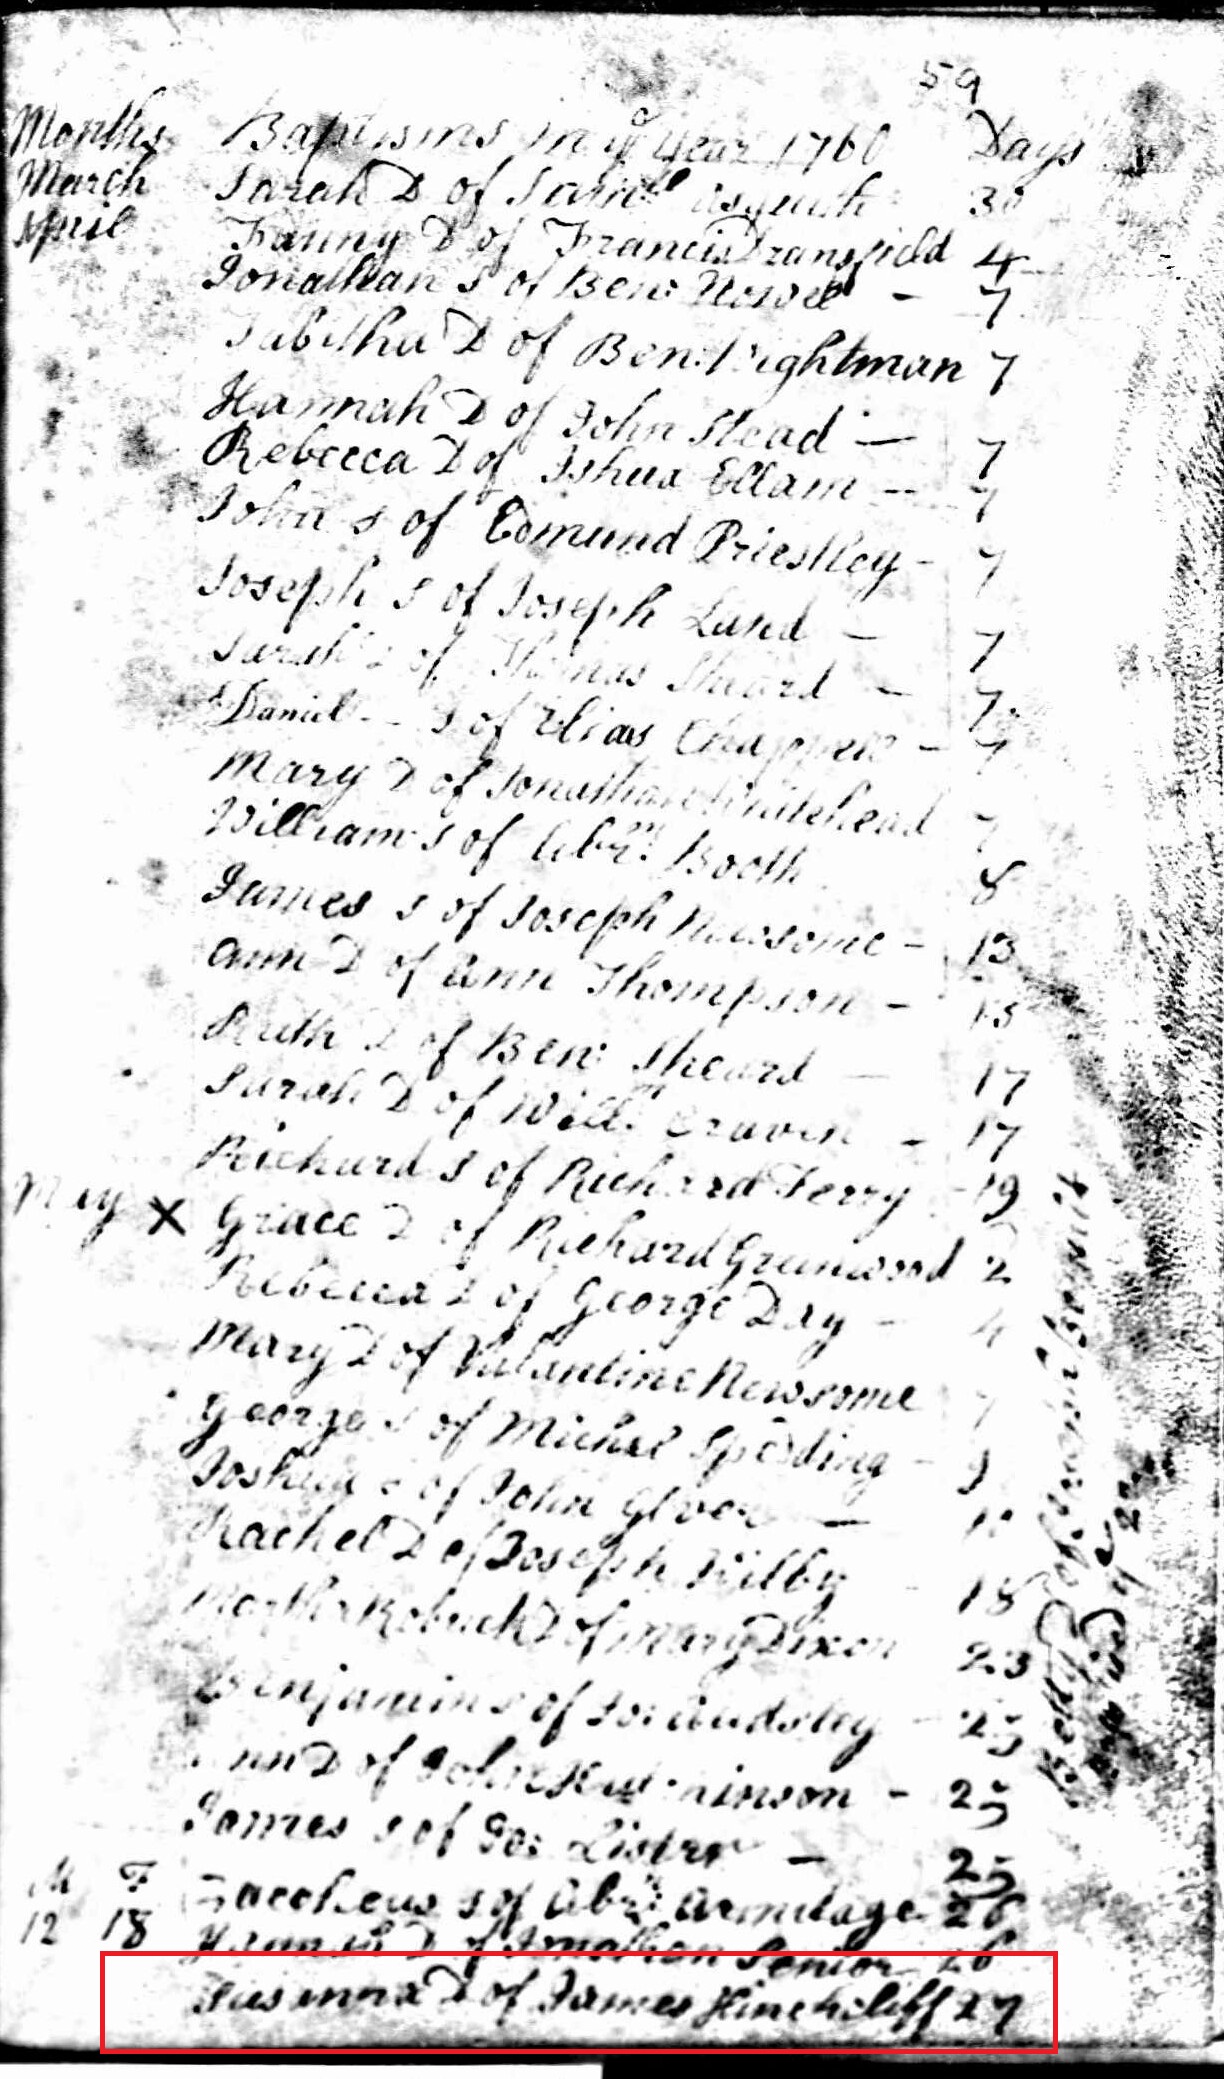 59
Months Baptisms in ye Year 1760 Days
March Sarah D of Saml asquith 30
April Fanny D of Francis Dransfield 4
Jonathan s of Ben: Nowel - 7
Tabitha D of Ben: Wightman 7
Hannah D of John Stead - 7
Rebecca D of Ishua Ellam -- 7
John s of Edmund Priestley - 7
Joseph s of Joseph Land - 7
Sarah of Thomas Sheard - 7
Daniel -- S of Elias Chappell - 7
Mary D of Jonathan Whitehead 7
William s of Abrm Booth 8
James s of Joseph Newsome - 13
Ann D of Ann Thompson - 15
Ruth D of Ben: Sheard - 17
Sarah D of Willm Craven - 17
Richard s of Richard Terry - 19
May X Grace D of Richard Greenwood 2
Rebecca D of George Day - 4
Mary D of Valantine Newsome 7
George s of Michael Speding - 9
Joshua s of John Glover -
Rachel D of Joseph Wilby 18
Martha Robuck D of Mary Dixon 23
Benjamin s of Jos: Audsley - 25
Ann D of John Hutchinson - 25
James s of Jos: Lister - 25
M F Zaccheus s of Abrm Armitage 26
12 18 Hannah D of Jonathan Senior 26
Susanna D of James Hinchcliff 27